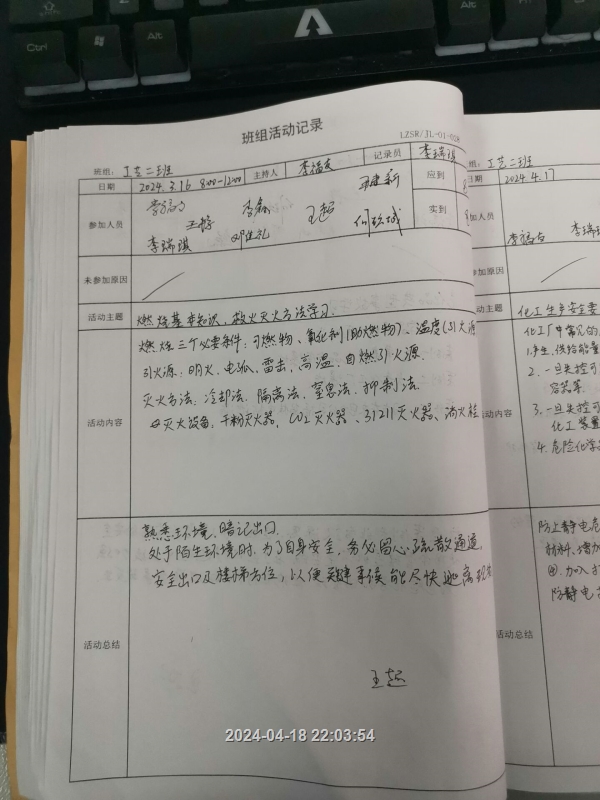 Ctrl
Alt
Alt
班组活动记录
LZSR/JL-01-028
班组: 工艺二班
日期 2024.3.16 8:00-12:00 主持人 李福友 记录员 李瑞琪 应到
参加人员 李鑫 实到
王超
李瑞琪
未参加原因
活动主题 燃烧基本知识、救火灭火方法学习.
活动内容 燃烧三个必要条件: 可燃物、氧化剂(助燃物)、温度(引火源
引火源: 明火、电弧、雷击、高温、自燃引火源.
灭火方法: 冷却法、隔离法、窒息法、抑制法.
灭火设备、干粉灭火器, CO2灭火器、1211灭火器、消火栓
活动总结 熟悉环境、暗记出口.
处于陌生环境时, 为了自身安全, 务必留心疏散通道,
安全出口及楼梯方位, 以便关键事候能尽快逃离现
王超
班组: 工艺二班
日期 2024.4.17
参加人员 李福友 李瑞
未参加原因
活动主题 化工生产安全要
活动内容 化工厂中常见的
1.产生、供给能量
2. 一旦失控可
3. 一旦失控可
化工装置
4. 危险化学
活动总结 防止静电危
材料、增加
④.加入
防静电
2024-04-18 22:03:54